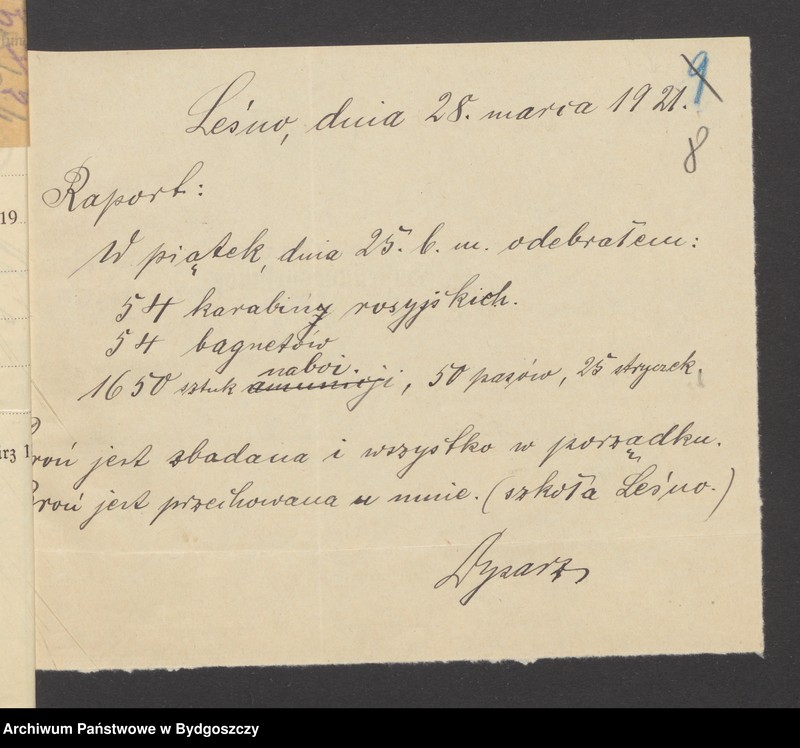 9
8
Leśno, dnia 28. marca 1921.
Raport:
W piątek, dnia 25. b. m. odebrałem:
54 karabiny rosyjskich.
54 bagnetów
naboi.
1650 sztuk amunicji, 50 pasów, 25 stryczek.
Broń jest zbadana i wszystko w porządku.
Broń jest przechowana u mnie. (szkoła Leśno.)
19
rz 1
Archiwum Państwowe w Bydgoszczy